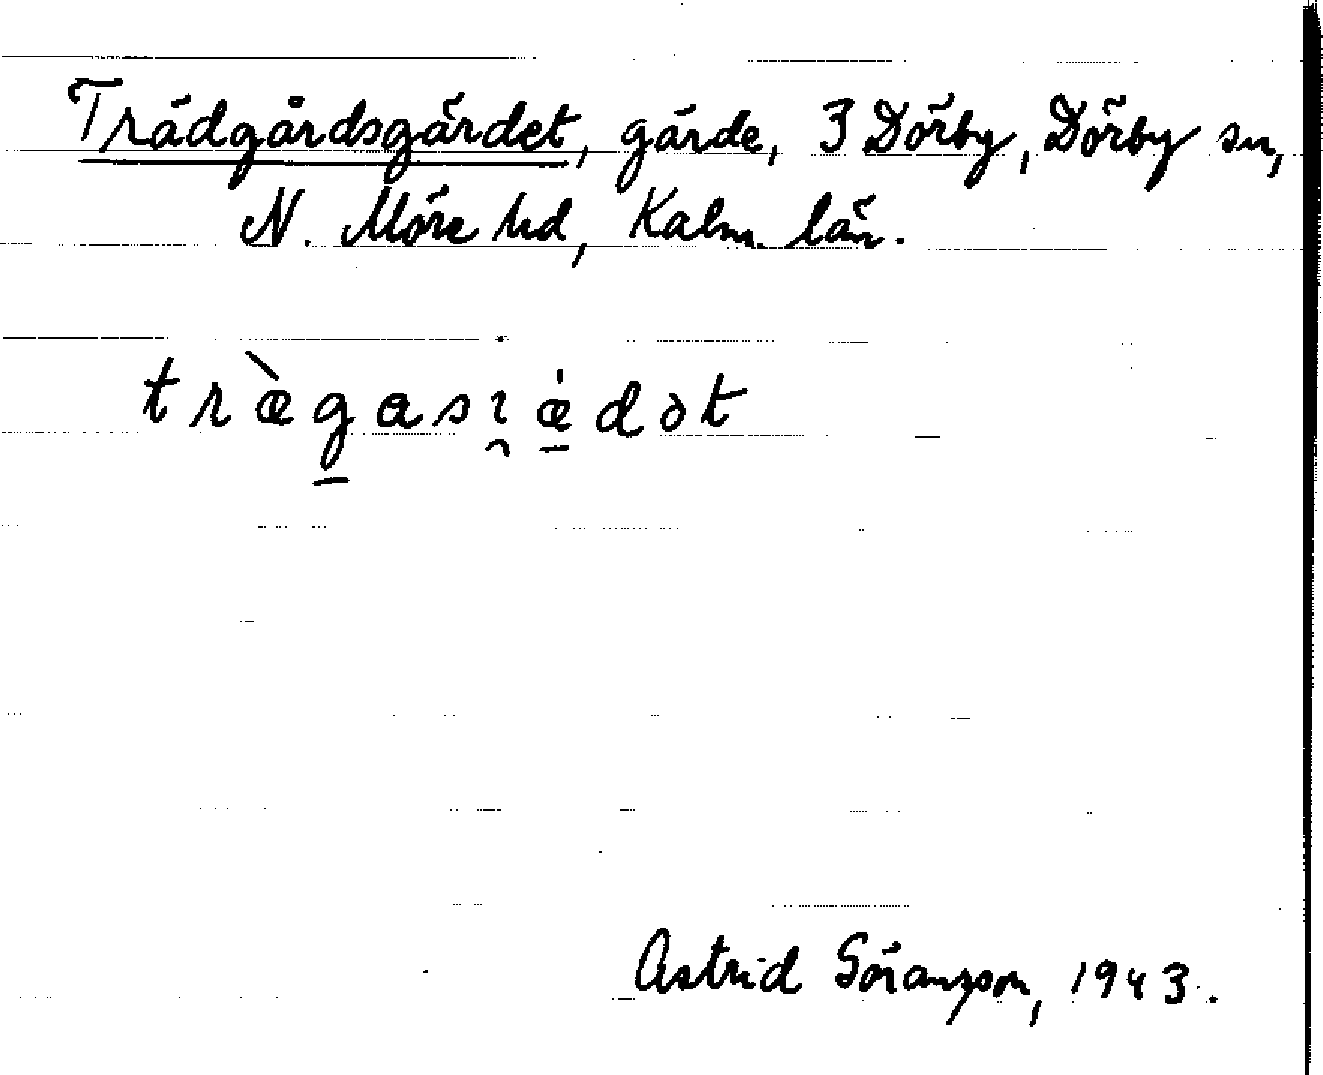 Trädgårdsgärdet, gärde, 3 Dörby, Dörby sn,
N. Möre hd, Kalm. län.
træ̀g̱ası̯ǽ̱dət
Astrid Göranzon, 1943.